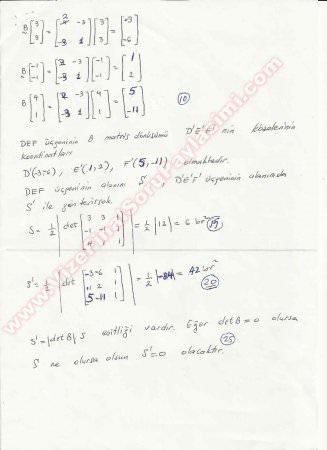 B [3 3] = [2 -3 -3 1] [3 3] = [-3 -6]
B [-1 -1] = [2 -3 -3 1] [-1 -1] = [1 2]
B [4 1] = [2 -3 -3 1] [4 1] = [5 -11]
(10)
DEF üçgeninin B matris dönüşümü D'E'F' nin köşelerinin
koordinatları
D'(-3,-6), E'(1,2), F'(5,-11) olmaktadır.
DEF üçgeninin alanını S, D'E'F' üçgeninin alanınıda
S' ile gösterirsek
S = 1/2 |det [3 3 1 -1 -1 1 4 1 1]| = 1/2 |12| = 6 br² (15)
S' = 1/2 |det [-3 -6 1 +1 2 1 5 -11 1]| = 1/2 |-84| = 42 br²
(20)
S' = |det B| S eşitliği vardır. Eğer det B = 0 olursa
S ne olursa olsun S' = 0 olacaktır. (25)
www.VizeFinalSoruPaylasimi.com